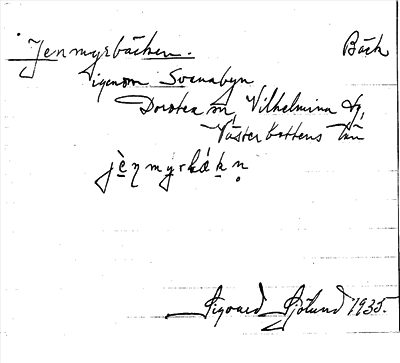 Jenmyrbäcken. Bäck
igenom Svanabyn
Dorotea sn, Vilhelmina tg,
Västerbottens län
jèn̥myrbǽkn̥
Sigvard Sjölund 1935.